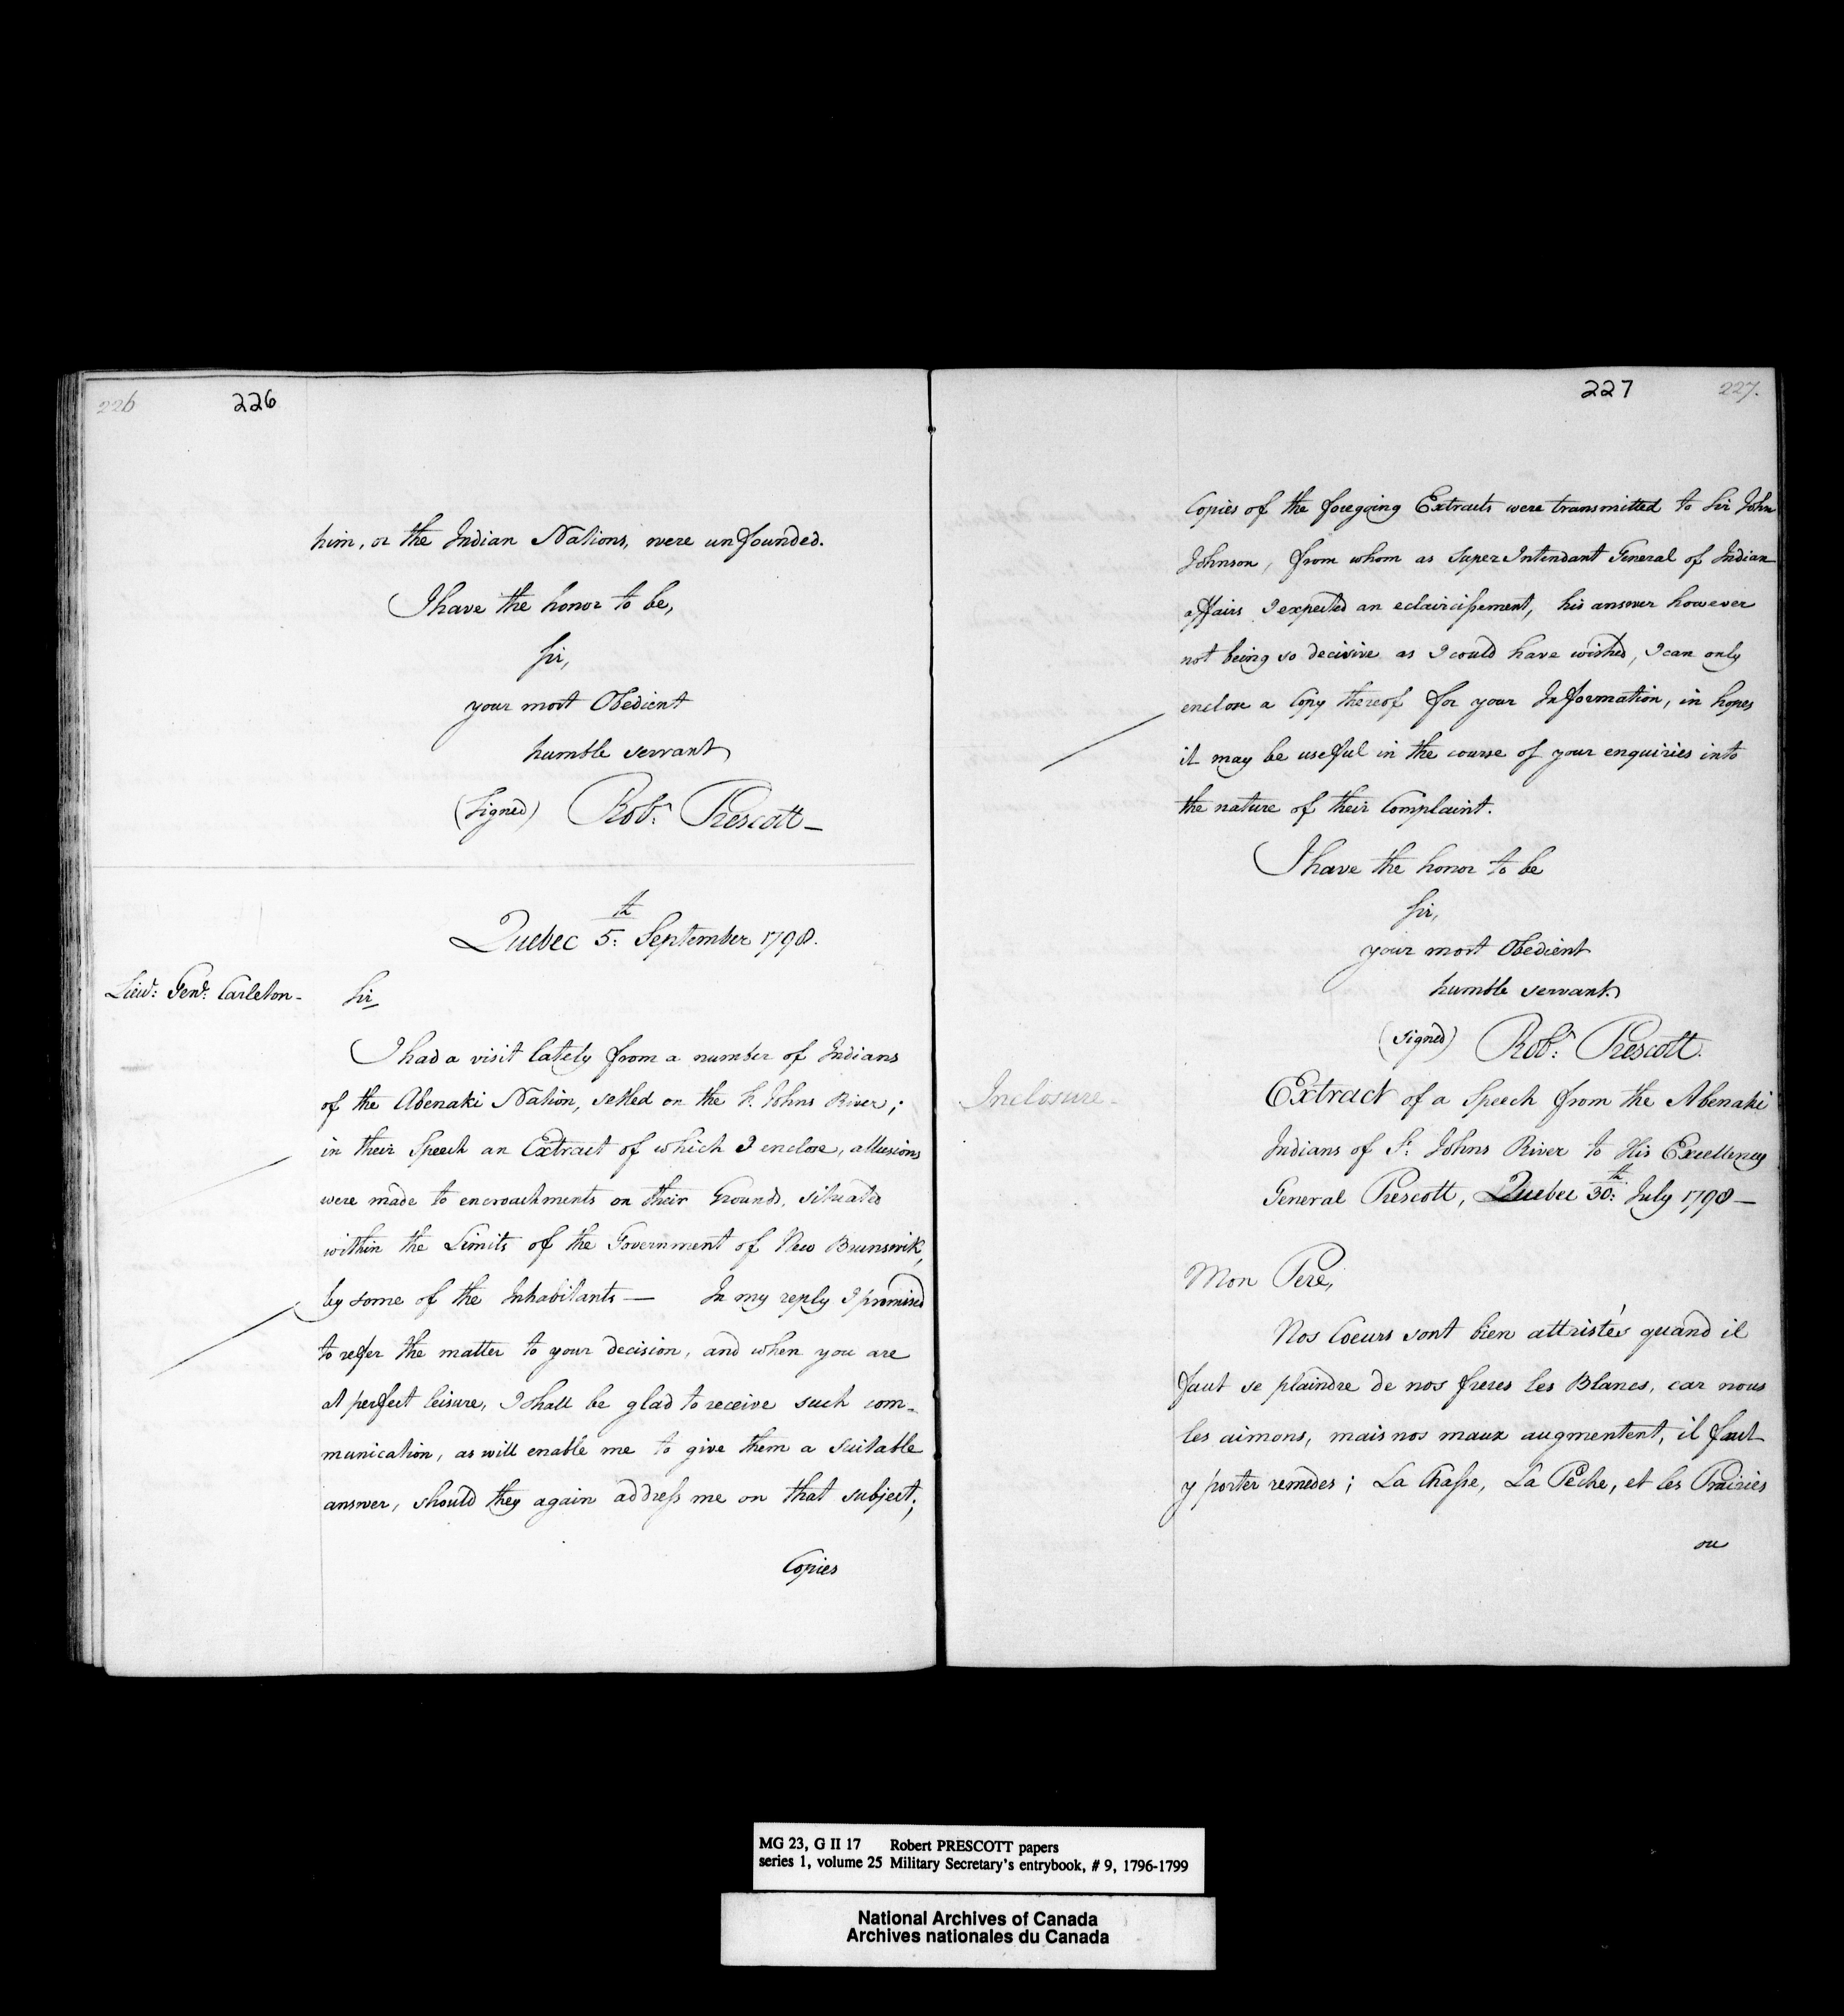 226
226
him, or the Indian Nations, were unfounded.
I have the honor to be,
Sir,
your most Obedient
humble servant
(Signed) Robt. Prescott —
Quebec 5th. September 1798.
Lieut. Genl. Carleton -
Sir
I had a visit lately from a number of Indians
of the Abenaki Nation, setled on the St. Johns River;
in their Speech an Extract of which I enclose, allusions
were made to encroachments on their Grounds, situated
within the Limits of the Government of New Brunswik,
by some of the Inhabitants — In my reply I promised
to refer the matter to your decision, and when you are
at perfect leisure, I shall be glad to receive such com-
munication, as will enable me to give them a suitable
answer, should they again address me on that subject;
Copies
227
227.
Copies of the foregoing Extracts were transmitted to Sir John
Johnson, from whom as Super Intendant General of Indian
affairs I expected an eclaircissement, his answer however
not being so decisive as I could have wished, I can only
enclose a Copy thereof for your Information, in hopes
it may be useful in the course of your enquiries into
the nature of their Complaint.
I have the honor to be
Sir,
your most Obedient
humble servant
(signed) Robt. Prescott.
Inclosure -
Extract of a Speech from the Abenaki
Indians of St. Johns River to His Excellency
General Prescott, Quebec 30th. July 1798 —
Mon Pere,
Nos Coeurs sont bien attristés quand il
faut se plaindre de nos freres les Blancs, car nous
les aimons, mais nos maux augmentent, il faut
y porter remèdes; La Chasse, La Pêche, et les Prairies
ou
MG 23, G II 17 Robert PRESCOTT papers
series 1, volume 25 Military Secretary's entrybook, # 9, 1796-1799
National Archives of Canada
Archives nationales du Canada